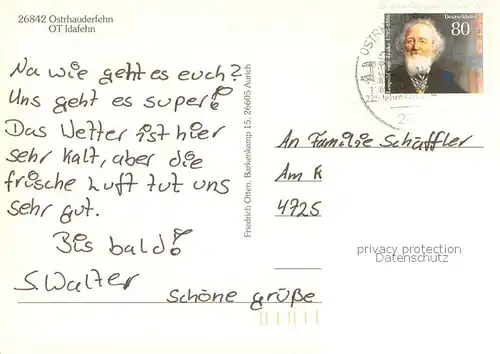 26842 Ostrhauderfehn
OT Idafehn
Na wie geht es euch?
Uns geht es super!
Das Wetter ist hier
sehr kalt, aber die
frische Luft tut uns
sehr gut.
Bis bald!
S. Walter
Schöne grüße
Friedrich Otten, Barkenkamp 15, 26605 Aurich
Deutschland
80
An Familie Schäffler
Am K
4725
privacy protection
Datenschutz